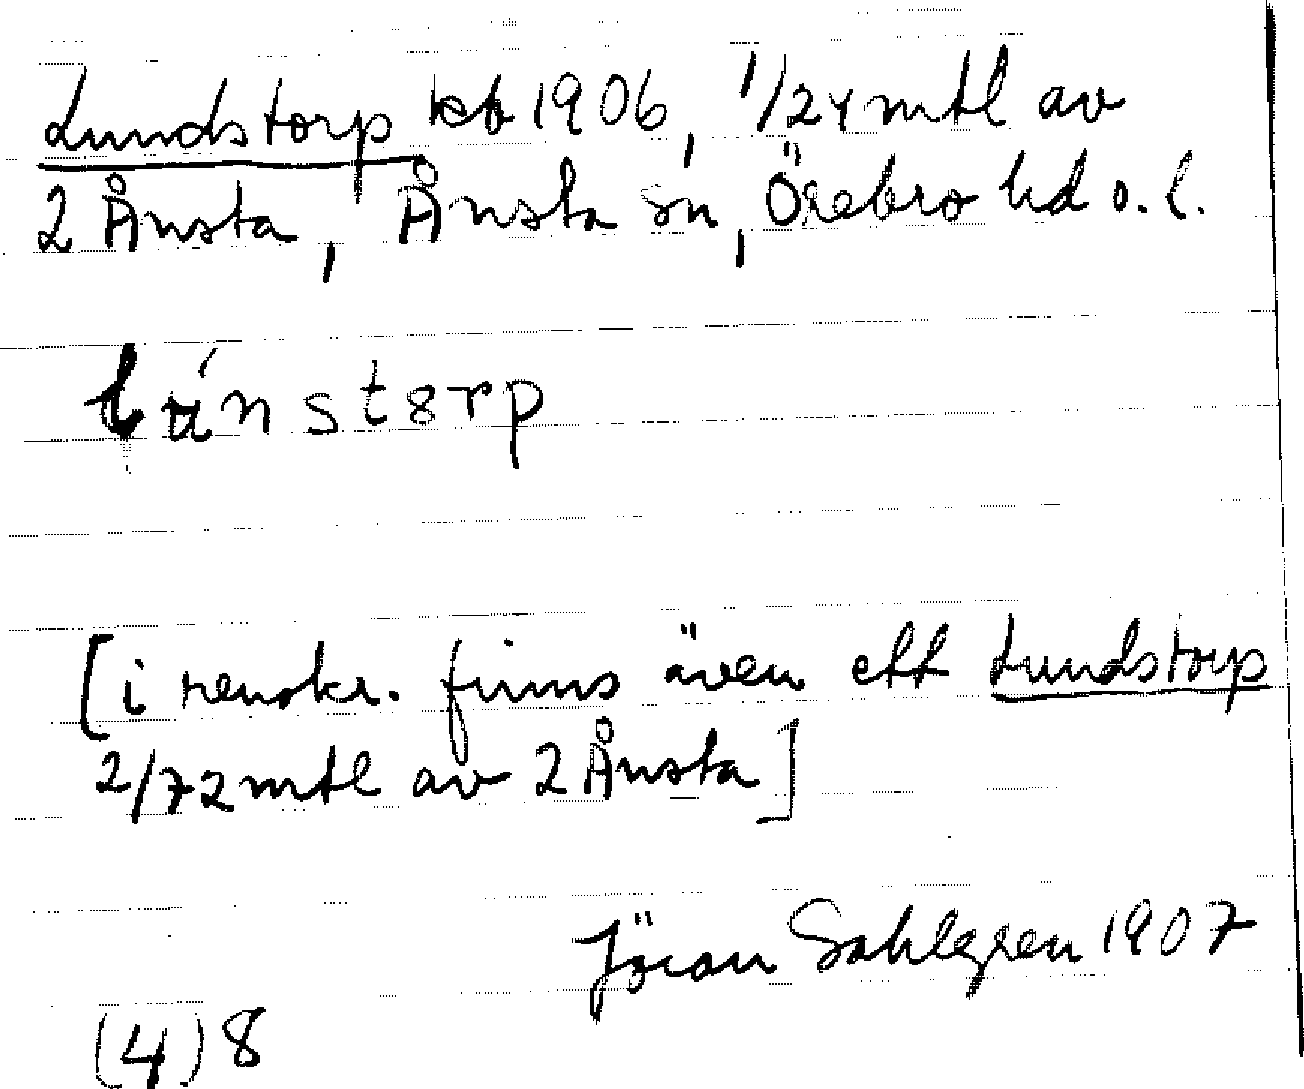 Lundstorp kb 1906, 1/24 mtl av
2 Ånsta, Ånsta sn, Örebro hd o. l.
lúnstorp
[i renskr. finns även ett Lundstorp
2/72 mtl av 2 Ånsta]
Jöran Sahlgren 1907
(4) 8